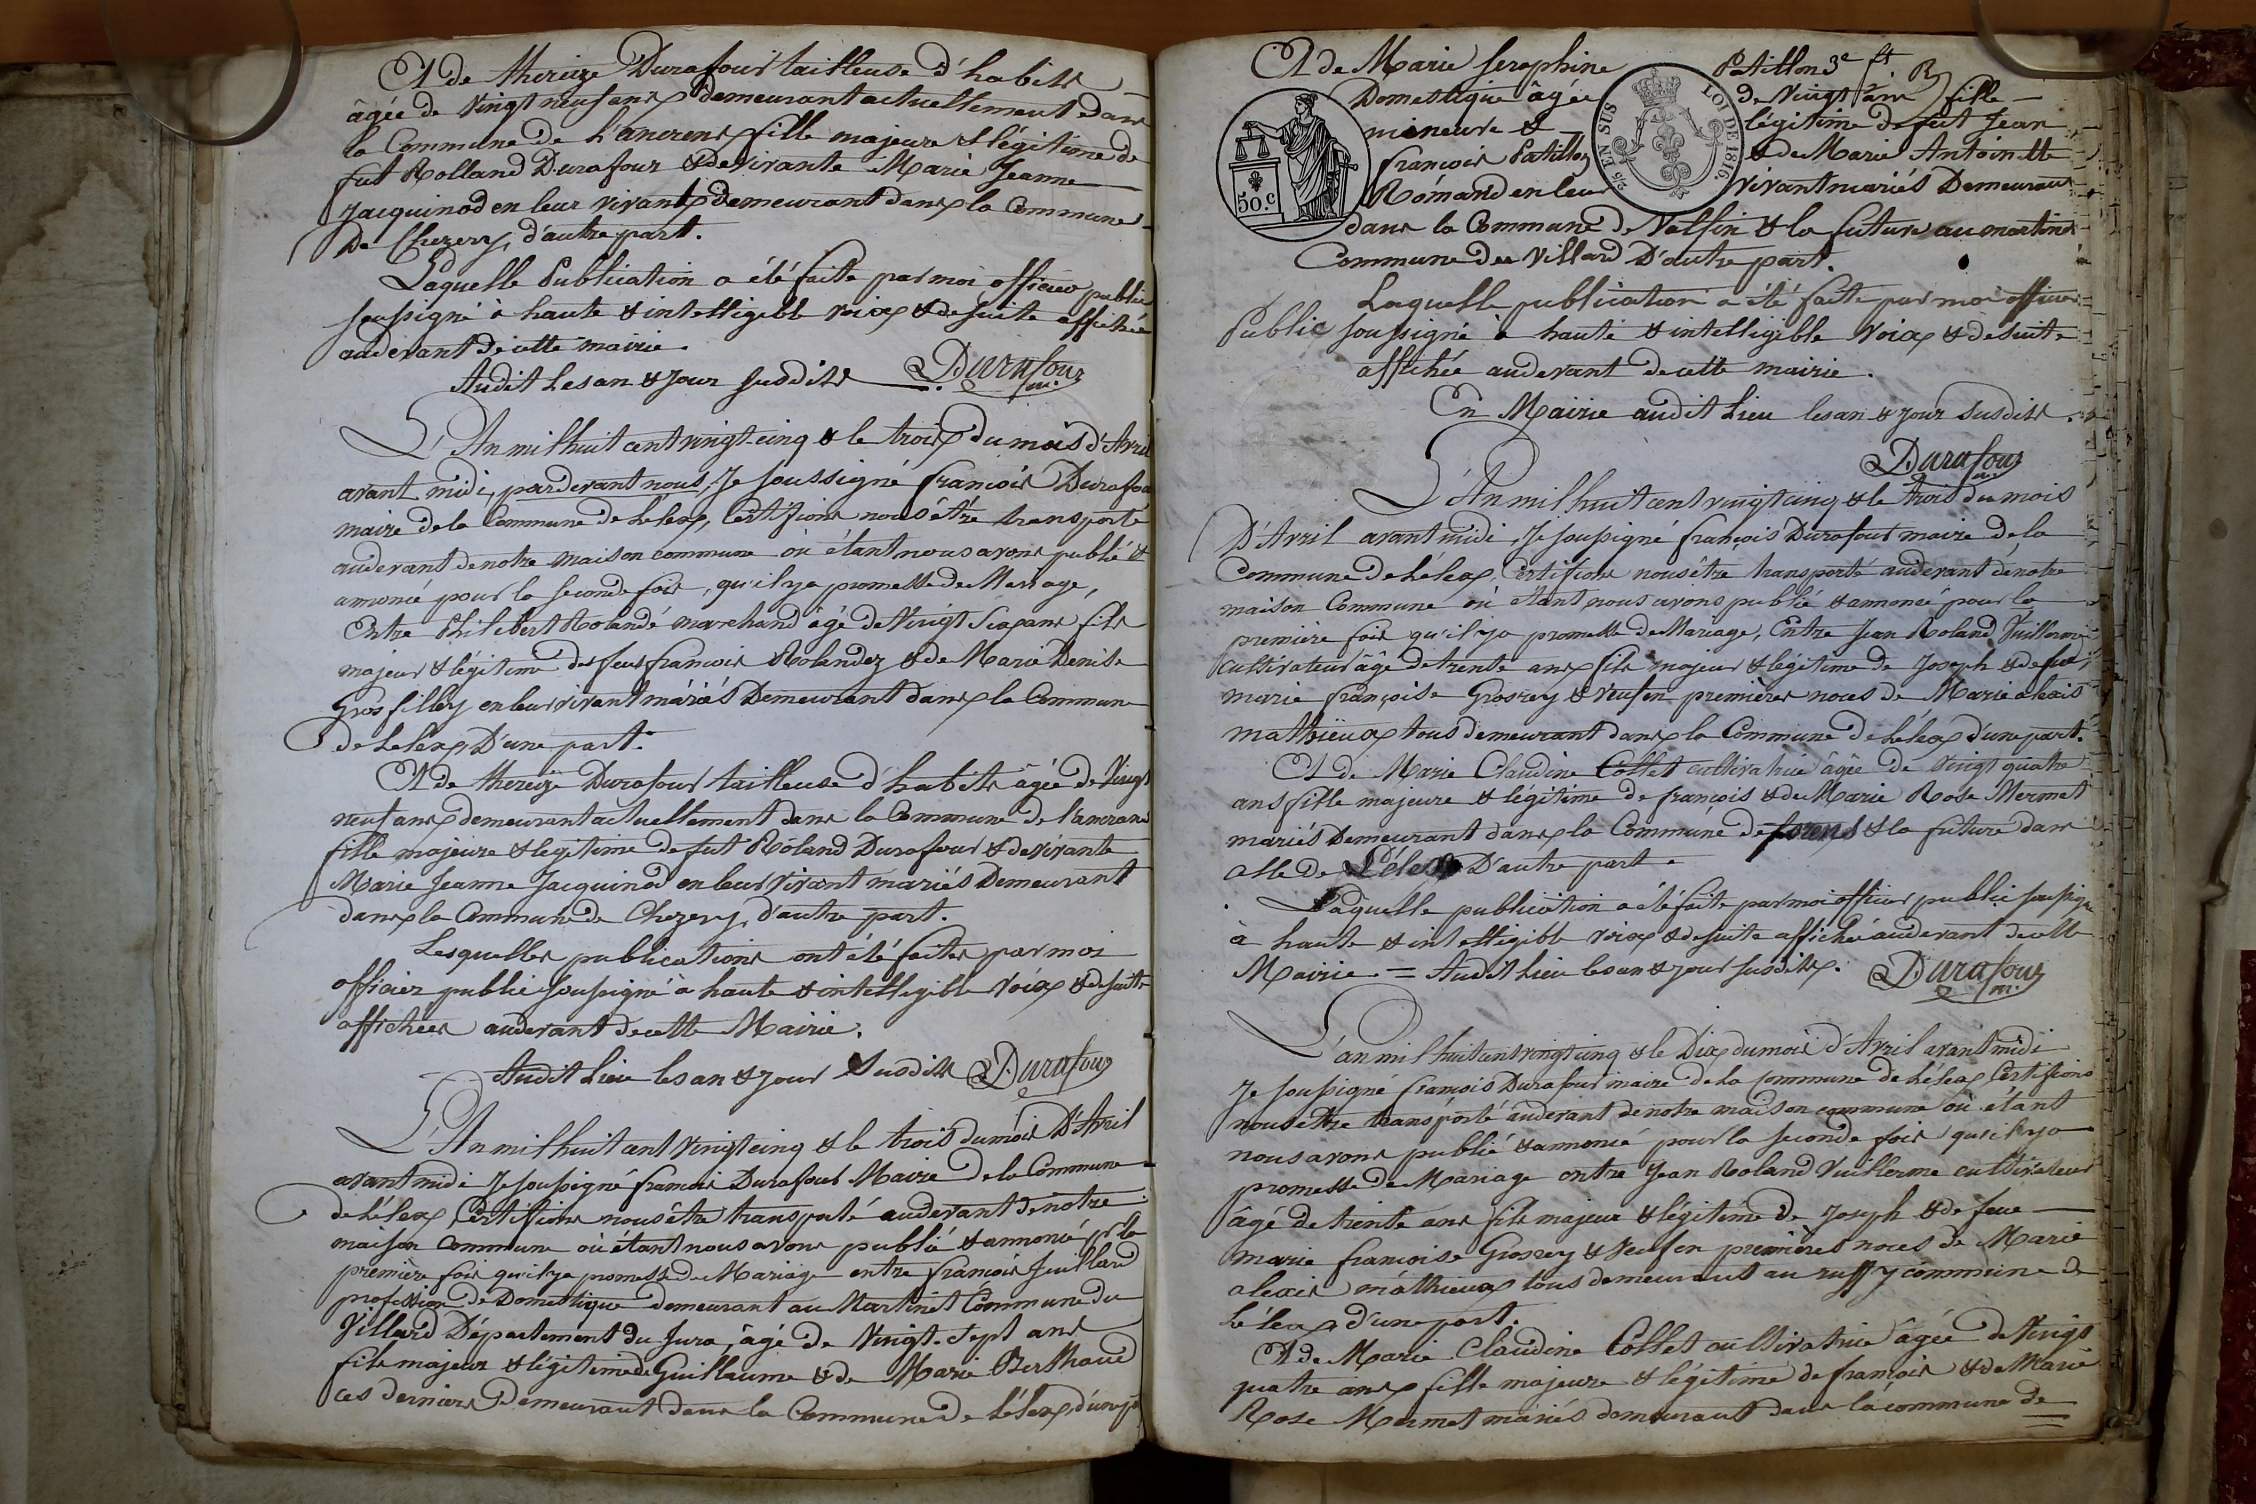 Et de thereize Durafour tailleuse d'habits
âgée de vingt neuf ans demeurant actuellement dans
la Commune de Lancrans fille majeure & légitime de
fut Rolland Durafour & de vivante Marie Jeanne
Jacquinod en leur vivant demeurant dans la Commune
De Chezery, d'autre part.
Laquelle Publication a été faite par moi officier public
soussigné à haute & intelligible voix & de suite affichée
au devant de cette mairie.
Audit Les an & jour susdits Durafour
m.
L'An mil huit cent vingt cinq & le trois du mois d'Avril
avant midi, par devant nous, Je soussigné françois Durafour
maire de la Commune de Lélex, Certifions nous être transporté
au devant de notre maison commune où étant nous avons publié &
annoncé pour la seconde fois, qu'il y a promesse de Mariage,
Entre Philibert Rolandé marchand âgé de Vingt Six ans fils
majeur & légitime de feu françois Rolandez & de Marie Denise
Grosfilley en leur vivant mariés Demeurant dans la Commune
de Lelex, D'une part.
Et de thereize Durafour tailleuse d'habits âgée de Vingt
neuf ans demeurant actuellement dans la Commune de Lancrans
fille majeure & légitime de fut Roland Durafour & de vivante
Marie Jeanne Jacquinod en leur vivant mariés Demeurant
dans la Commune de Chezery, d'autre part.
Lesquelles publications ont été faites par moi
officier public soussigné à haute & intelligible Voix & de suite
affichées au devant de cette Mairie.
Audit Lieu les an & jour Susdits Durafour
L'An mil huit cent vingt cinq & le trois du mois D'Avril
avant midi Je soussigné francois Durafour Maire de la Commune
de Lélex, Certifions nous être transporté au devant de notre
maison commune où étant nous avons publié & annoncé pr la
première fois qu'il y a promesse de Mariage entre françois Juillard
profession de Domestique demeurant au Martinet Commune du
Villard Département du Jura, âgé de Vingt-Sept ans
fils majeur & légitime de Guillaume & de Marie Berthaud
ces derniers Demeurant dans la Commune de Lélex, d'une pt
Et de Marie Seraphine Patillon
Domestique âgée de Vingt ans fille
mineure & légitime de fut Jean
françois Patillon & de Marie Antoinette
Romand en leur vivant mariés Demeurant
dans la Commune de Valfin & la future au martinet
Commune du Villard D'autre part.
50.c
2/5 EN SUS
LOI DE 1816.
Laquelle publication a été faite par moi officier
Public soussigné à haute & intelligible Voix & de suite
affichée au devant de cette mairie.
En Mairie audit Lieu les an & jour susdits.
Durafour
m.
L'An mil huit cent vingt cinq & le trois du mois
D'Avril avant midi, Je soussigné françois Durafour maire de la
Commune de Lélex, Certifions nous être transporté au devant de notre
maison Commune où étant nous avons publié & annoncé pour la
première fois qu'il y a promesse de Mariage, Entre Jean Roland Vuillerme
cultivateur âgé de trente ans fils majeur & légitime de Joseph & de feue
marie françoise Grosrey & Veuf en premières noces de Marie alexis
mathieux tous demeurant dans la Commune de Lélex d'une part.
Et de Marie Claudine Collet cultivatrice âgée de Vingt quatre
ans fille majeure & légitime de françois & de Marie Rose Mermet
mariés Demeurant dans la Commune de forens & la future dans
elle de Lélex D'autre part.
Laquelle publication a été faite par moi officier public soussigné
à haute & intelligible voix & de suite affichée au devant de cette
Mairie = Audit Lieu les an & jour susdits. Durafour
m.
L'an mil huit cent vingt cinq & le Dix du mois d'Avril avant midi
Je soussigné françois Durafour maire de la commune de Lélex, Certifions
nous être transporté au devant de notre maison commune où étant
nous avons publié & annoncé pour la seconde fois qu'il y a
promesse de Mariage entre Jean Roland Vuillerme cultivateur
âgé de trente ans fils majeur & légitime de Joseph & de feue
marie francoise Grosrey & Veuf en premières noces de Marie
alexis mathieux tous demeurant au ruffy commune de
Lélex, d'une part.
Et de Marie Claudine Collet cultivatrice âgée de Vingt
quatre ans fille majeure & légitime de françois & de Marie
Rose Mermet mariés demeurant dans la commune de